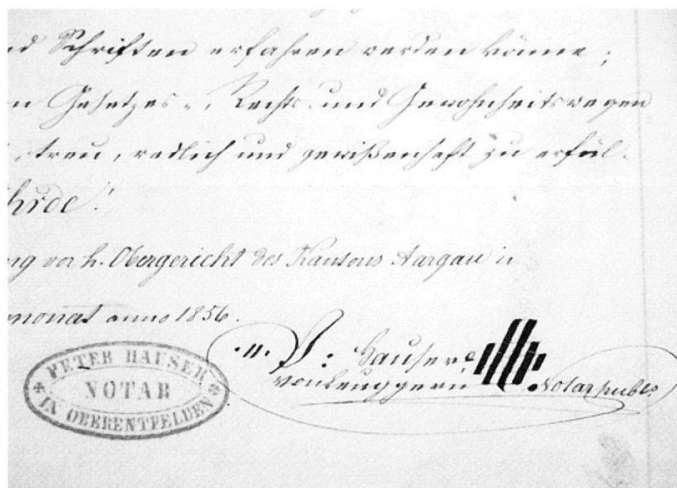 d Schriften erfahren werden könne ;
n Gesetzes-, Rechts- und Gewohnheitswegen
, treu, redlich und gewißenhaft zu erfül-
ng vor h. Obergericht des Kantons Aargau in
monat anno 1856.
P: Hauser
von Leuggern Notar publ.
PETER HAUSER
NOTAR
IN OBERENTFELDEN